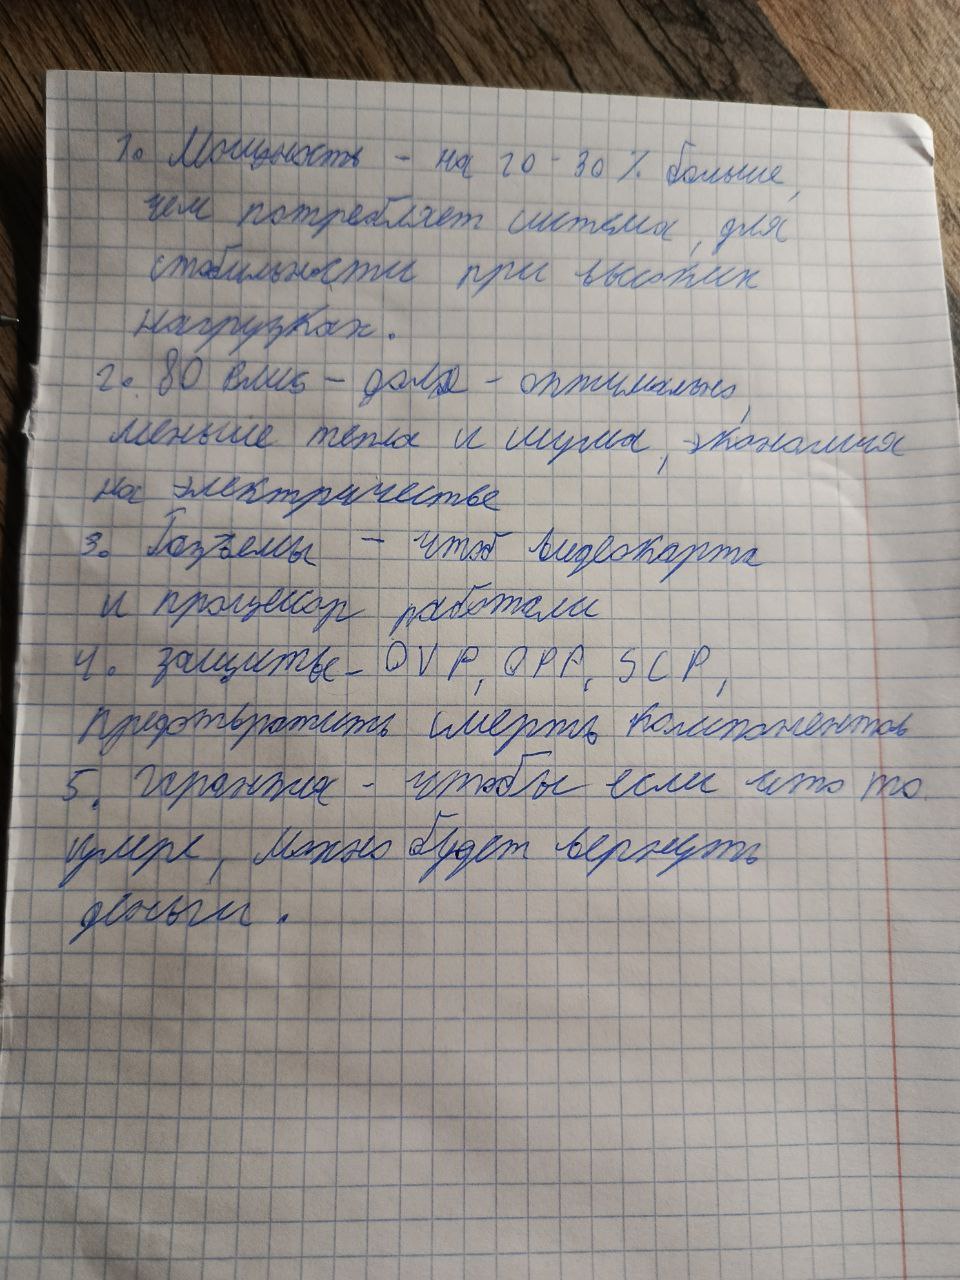 1. Мощность - на 20-30% больше,
чем потребляет система, для
стабильности при высоких
нагрузках.
2. 80 плюс - голд - оптимально,
меньше тепла и шума, экономия
на электричестве
3. Разъемы - чтоб видеокарта
и процессор работали
4. защиты - OVP, OPP, SCP,
предотвратить смерть компонентов
5. Гарантия - чтобы если что то
умере, можно будет вернуть
деньги.